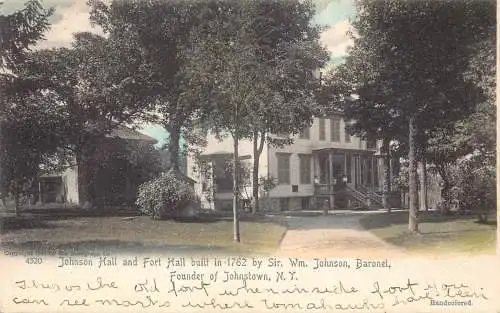 4520 Johnson Hall and Fort Hall built in 1762 by Sir. Wm. Johnson, Baronel,
Founder of Johnstown, N.Y.
This was the old fort when inside fort you
can see marks where Tomahawks have been
Handcolored.